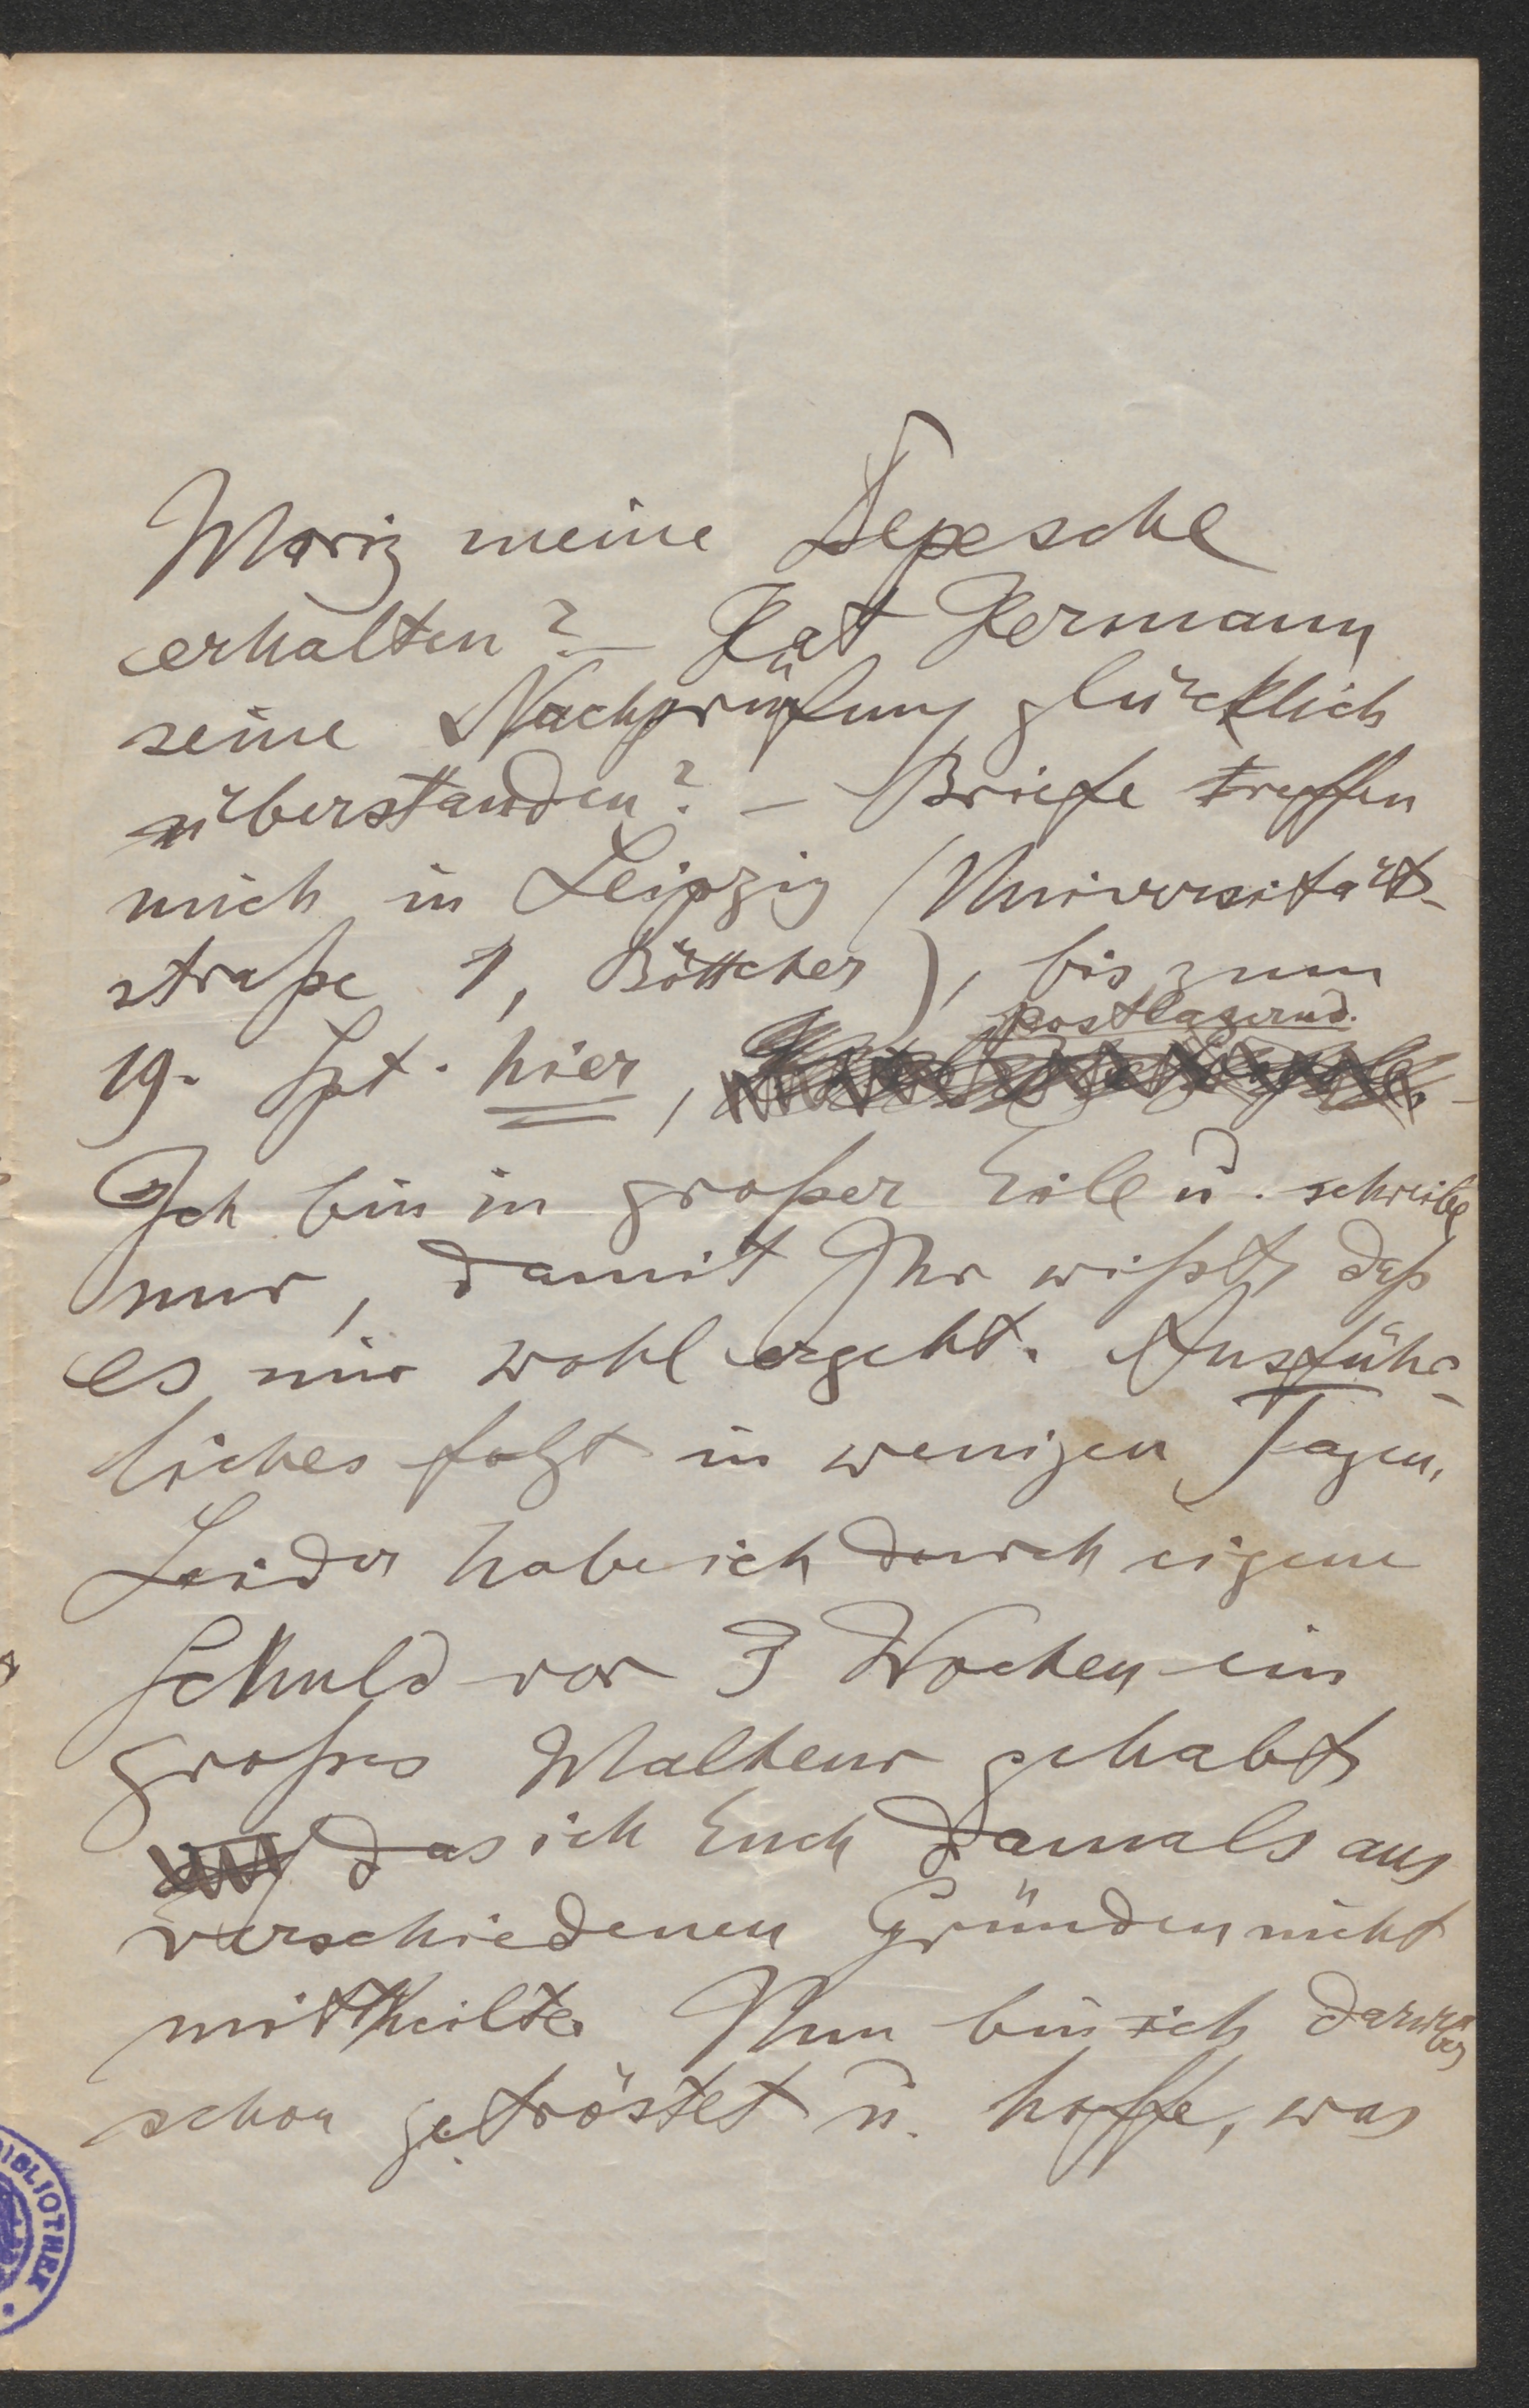 Moriz meine Depesche
erhalten? – Hat Hermann
seine Nachprüfung glücklich
überstanden? – Briefe treffen
mich in Leipzig (Universitäts-
straße 1, Böttcher), bis zum
postlagernd.
19. Spt. hier, –
Ich bin in großer Eile u. schreibe
nur, damit Ihr wißt, daß
es mir wohl ergeht. Ausführ-
liches folgt in wenigen Tagen.
Leider habe ich durch eigene
Schuld vor 3 Wochen ein
großes Malheur gehabt
das ich Euch damals aus
verschiedenen Gründen nicht
mittheilte. Nun bin ich darüber
schon getröstet u. hoffe, was
BIBLIOTHEK